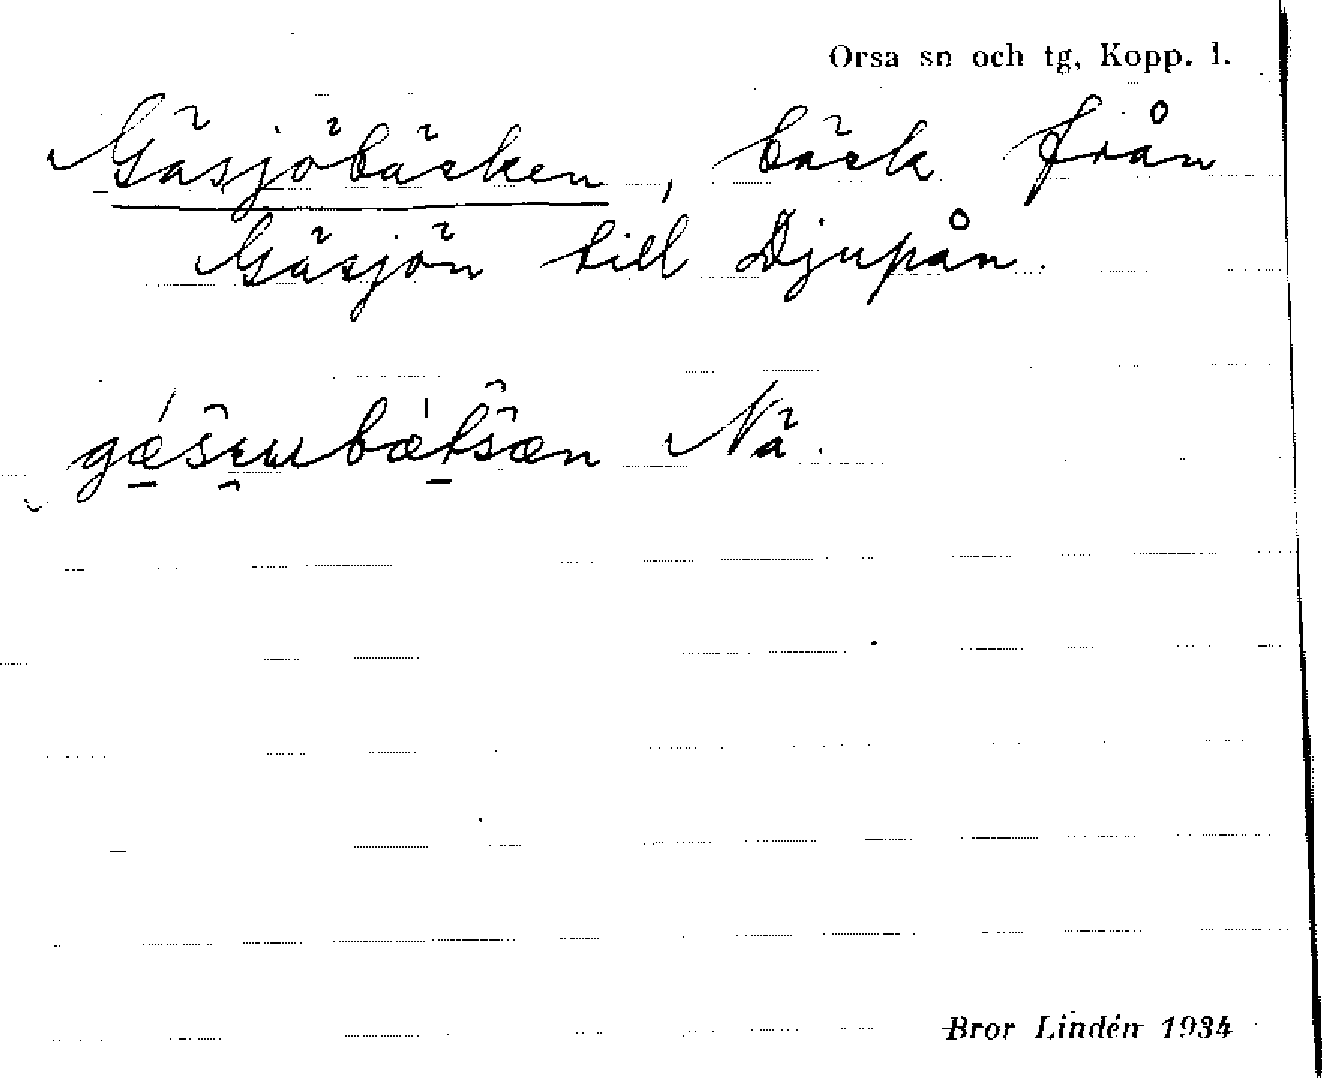 Orsa sn och tg, Kopp. l.
Gäsjöbäcken, bäck från
Gäsjön till Djupån.
Nä.
Bror Lindén 1934